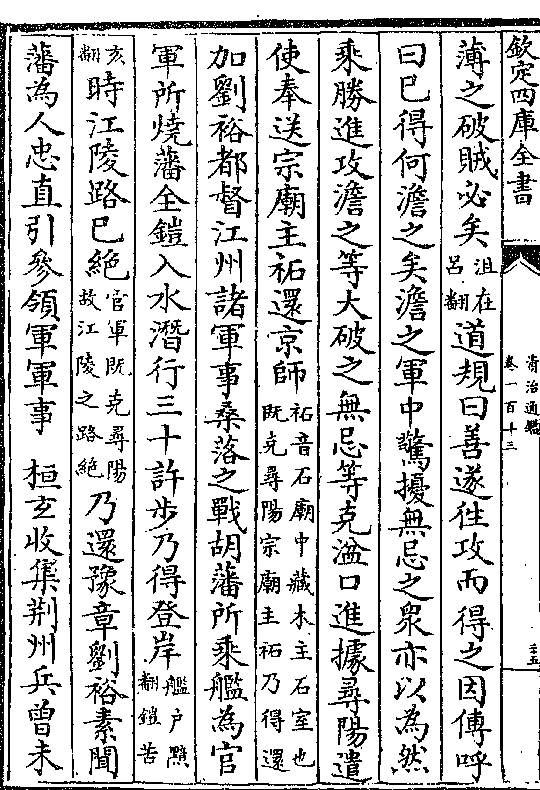 欽定四庫全書
資治通鑑
卷一百十三
三五
薄之破賊必矣沮在呂翻道規曰善遂往攻而得之因傳呼
曰已得何澹之矣澹之軍中驚擾無忌之衆亦以為然
乘勝進攻澹之等大破之無忌等克湓口進據尋陽遣
使奉送宗廟主祏還京師祏音石廟中藏木主石室也既克尋陽宗廟主祏乃得還
加劉裕都督江州諸軍事桑落之戰胡藩所乘艦為官
軍所燒藩全鎧入水潛行三十許步乃得登岸艦户黯翻鎧苦
亥翻時江陵路已絶官軍既克尋陽故江陵之路絶乃還豫章劉裕素聞
藩為人忠直引參領軍軍事 桓玄收集荆州兵曾未